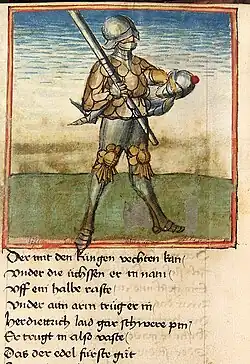 Der mit den küngen vechten kan
Under die üchssen er in nam
Uff ein halbe raste
Under aim arm trüg er in
Her diettrich laid gar schwere pin
Er trügt in also vaste
Das der edel fürste güt